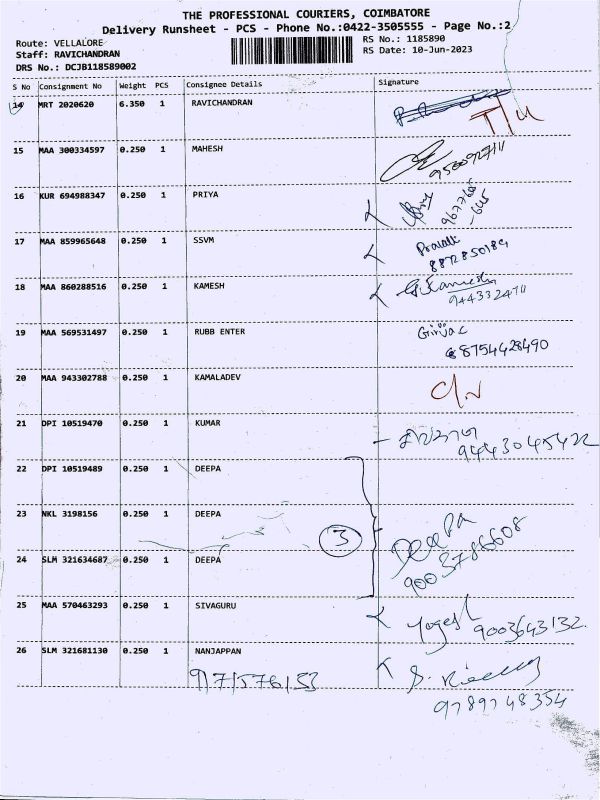 THE PROFESSIONAL COURIERS, COIMBATORE
Delivery Runsheet - PCS - Phone No.:0422-3505555 - Page No.:2
Route: VELLALORE
Staff: RAVICHANDRAN
DRS No.: DCJB118589002
RS No.: 1185890
RS Date: 10-Jun-2023
S No Consignment No Weight PCS Consignee Details Signature
14 MRT 2020620 6.350 1 RAVICHANDRAN
15 MAA 300334597 0.250 1 MAHESH
16 KUR 694988347 0.250 1 PRIYA
17 MAA 859965648 0.250 1 SSVM
8872850184
18 MAA 860288516 0.250 1 KAMESH G. Kamesh
944332471
19 RUBB ENTER MAA 569531497 0.250 1 Girijac
8754428490
20 MAA 943302788 0.250 1 KAMALADEV
21 DPI 10519470 0.250 1 KUMAR
9443045422
22 DPI 10519489 0.250 1 DEEPA
23 NKL 3198156 0.250 1 DEEPA
3 Deepa
24 SLM 321634687 0.250 1 DEEPA
9003786608
25 MAA 570463293 0.250 1 SIVAGURU Yogesh
9003643132
26 SLM 321681130 0.250 1 NANJAPPAN
9789748354